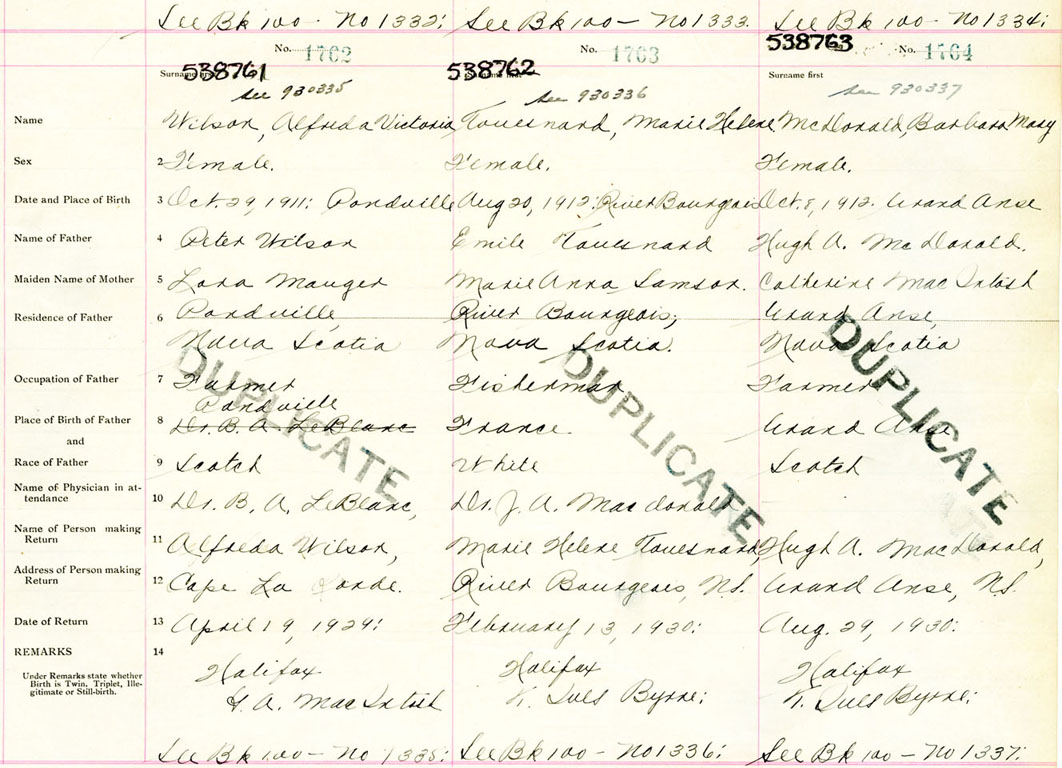 See Bk 100 - No 1332; See Bk 100 - No 1333. See Bk 100 - No 1334;
No. 1762 No. 1763 No. 1764
538761 538762 538763
Surname first Surname first Surname first
See 930335 See 930336 See 930337
Name Wilson, Alfreda Victoria Touesnard, Marie Helene McDonald, Barbara Mary
Sex 2 Female. Female. Female.
Date and Place of Birth 3 Oct. 29, 1911; Pondville Aug 20, 1912; River Bourgeois Oct. 8, 1912. Grand Anse
Name of Father 4 Peter Wilson Emile Touesnard Hugh A. McDonald.
Maiden Name of Mother 5 Lora Mauger Marie Anna Samson. Catherine MacIntosh
Residence of Father 6 Pondville, River Bourgeois; Grand Anse,
Nova Scotia Nova Scotia. Nova Scotia
Occupation of Father 7 Farmer Fisherman Farmer
Pondville
Place of Birth of Father 8 Dr. B. A. LeBlanc France. Grand Anse
and
Race of Father 9 Scotch White Scotch
Name of Physician in attendance 10 Dr. B. A. LeBlanc, Dr. J. A. Macdonald
Name of Person making Return 11 Alfreda Wilson, Marie Helene Touesnard, Hugh A. MacDonald,
Address of Person making Return 12 Cape La Ronde. River Bourgeois, N.S. Grand Anse, N.S.
Date of Return 13 April 19, 1929; February 13, 1930; Aug. 29, 1930;
REMARKS 14 Halifax Halifax Halifax
Under Remarks state whether Birth is Twin, Triplet, Illegitimate or Still-birth.
G. A. MacIntosh Byrne; Byrne;
DUPLICATE DUPLICATE DUPLICATE
See Bk 100 - No 1335; See Bk 100 - No 1336; See Bk 100 - No 1337;